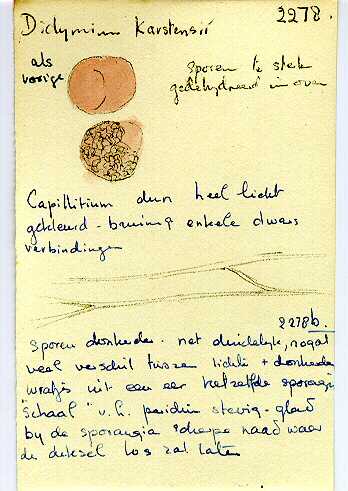 Didymium Karstensii 2278.
als
vorige
sporen te sterk
gedehydreerd in oven
Capillitium dun heel licht
gekleurd - bruinig enkele dwars
verbindingen
2278b.
sporen donkerder - net duidelijk, nogal
veel verschil tussen lichte + donkere
wratjes uit een en hetzelfde sporangi
"Schaal" v.h. peridium stevig - glad
by de sporangia scherpe naad waar
de deksel los zal laten